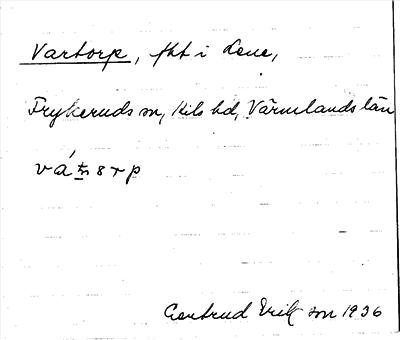 Vartorp, fht i Lene,
Frykeruds sn, Kils hd, Värmlands län
Gertrud Eriksson 1936